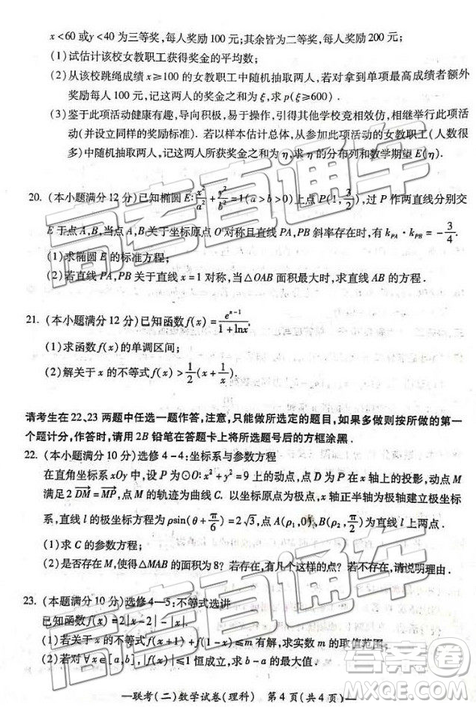 x<60 或y<40 为三等奖,每人奖励 100 元;其余皆为二等奖,每人奖励 200 元;
(1)试估计该校女教职工获得奖金的平均数;
(2)从该校跳绳成绩 x≥100 的女教职工中随机抽取两人,若对拿到单项最高成绩者额外
奖励每人 100 元,记这两人的奖金之和为 ξ,求 p(ξ≥600).
(3)鉴于此项活动健康有趣,导向积极,易于操作,引得其他学校竞相效仿,相继举行此项活动
(并设立同样的奖励标准).若以样本估计总体,从参加此项活动的女教职工(人数众多)
中随机抽取两人,记这两人所获奖金之和为 η,求 η 的分布列和数学期望 E(η).
20. (本小题满分 12 分)已知椭圆 E:x²/a²+y²/b²=1(a>b>0)上点 P(1,3/2),一组平行直线分别交
E 于点 A,B,当点 A,B 关于坐标原点 O 对称且直线 PA,PB 斜率存在时,有 k_PA·k_PB=-3/4.
(1)求椭圆 E 的标准方程;
(2)若直线 PA,PB 关于直线 x=1 对称,当△OAB 面积最大时,求直线 AB 的方程.
21. (本小题满分 12 分)已知函数 f(x)=e^(x-1)/(1+lnx).
(1)求函数 f(x)的单调区间;
(2)解关于 x 的不等式 f(x)>1/2(x+1/x)
请考生在 22,23 两题中任选一题作答,注意,只能做所选定的题目,如果多做则按所做的第一
个题计分,作答时,请用 2B 铅笔在答题卡上将所选题号后的方框涂黑.
22. (本题满分 10 分)选修 4-4:坐标系与参数方程
在直角坐标系 xOy 中,设 P 为⊙O:x²+y²=9 上的动点,点 D 为 P 在 x 轴上的投影,动点 M
满足 2DM=MP,点 M 的轨迹为曲线 C.以坐标原点为极点,x 轴正半轴为极轴建立极坐标
系,直线 l 的极坐标方程为 ρsin(θ+π/6)=2√3,点 A(ρ₁,0),B(ρ₂,π/2)为直线 l 上两点.
(1)求 C 的参数方程;
(2)是否存在 M,使得△MAB 的面积为 8?若存在,有几个这样的点?若不存在,请说明理由.
23. (本题满分 10 分)选修 4-5:不等式选讲
已知函数 f(x)=|2x-2|.
(1)若关于 x 的不等式 f(x+1)+f(x)<m 有解,求实数 m 的取值范围.